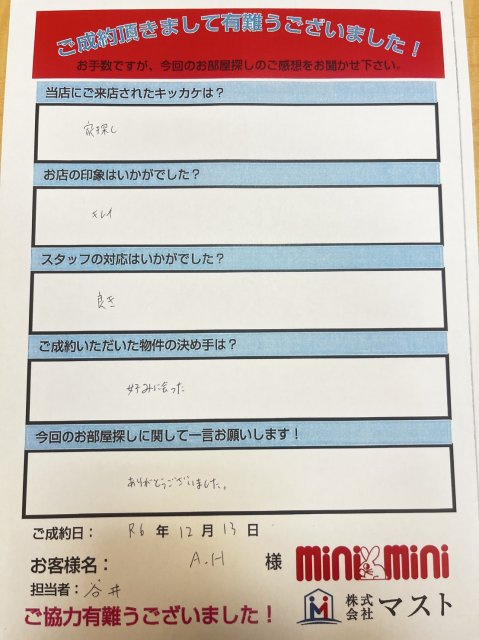 ご成約頂きまして有難うございました！
お手数ですが、今回のお部屋探しのご感想をお聞かせ下さい。
当店にご来店されたキッカケは？
家探し
お店の印象はいかがでした？
キレイ
スタッフの対応はいかがでした？
良き
ご成約いただいた物件の決め手は？
好みに会った
今回のお部屋探しに関して一言お願いします！
ありがとうございました。
ご成約日： R6 年 12 月 13 日
お客様名： A.H 様
mini mini
担当者：谷井
株式会社 マスト
ご協力有難うございました！